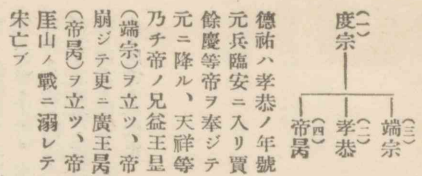 (一)度宗
(三)端宗
(二)孝恭
(四)帝昺
德祐ハ孝恭ノ年號
元兵臨安ニ入リ賈
餘慶等帝ヲ奉ジテ
元ニ降ル、天祥等
乃チ帝ノ兄益王昰
(端宗)ヲ立ツ、帝
崩ジテ更ニ廣王昺
(帝昺)ヲ立ツ、帝
厓山ノ戰ニ溺レテ
宋亡ブ